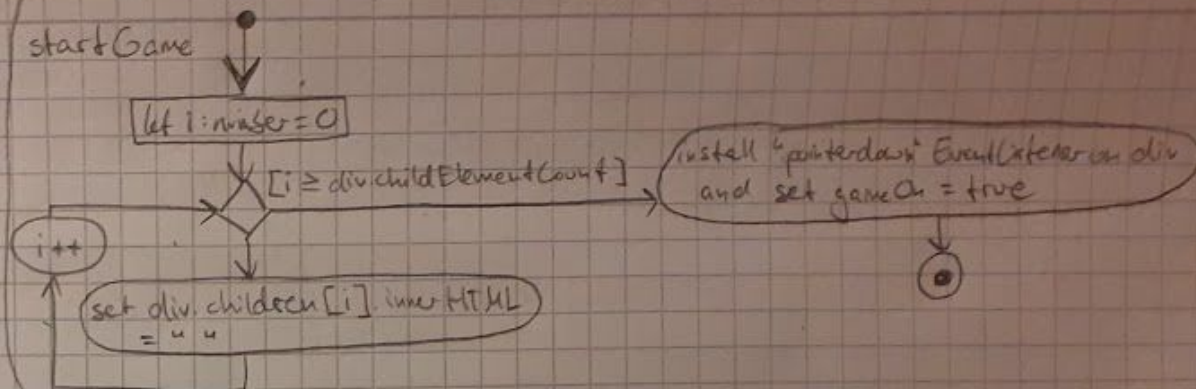 startGame
let i:number = 0
[i ≥ div.childElementCount]
install "pointerdown" EventListener on div
and set gameOn = true
i++
set div.children[i].innerHTML
= " "